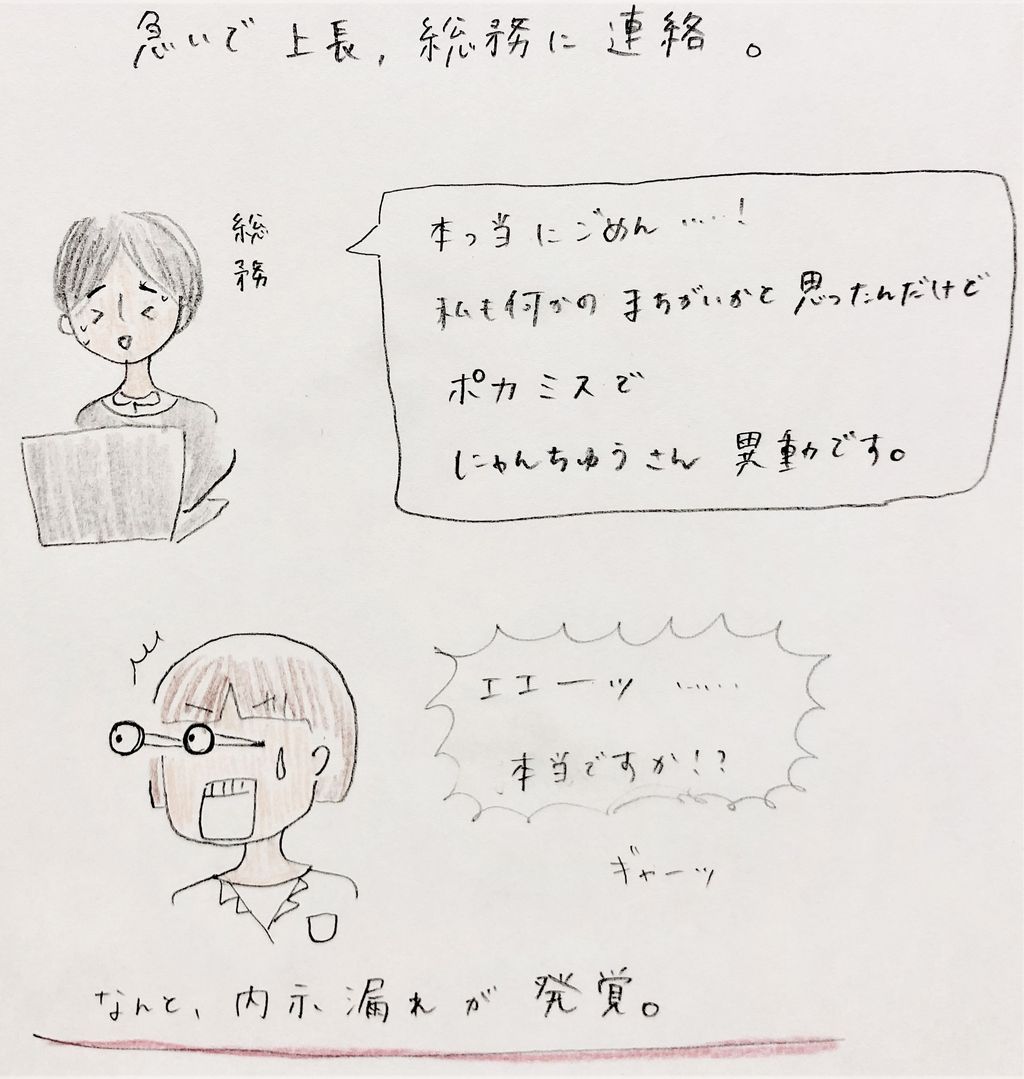 急いで上長,総務に連絡。
総務
本っ当にごめん……!
私も何かのまちがいかと思ったんだけど
ポカミスで
にゃんちゅうさん異動です。
エエーッ……
本当ですか!?
ギャーッ
なんと、内示漏れが発覚。